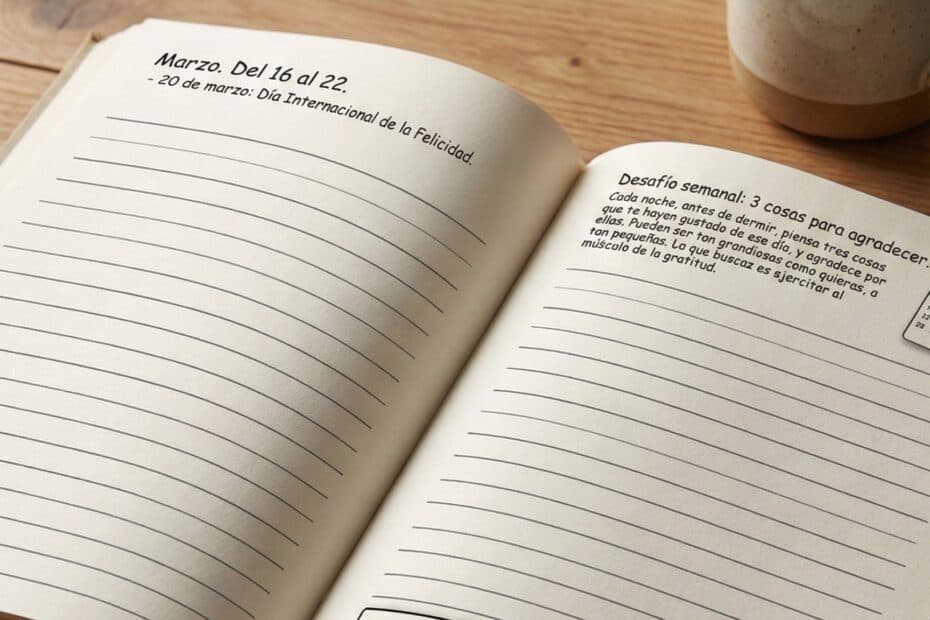 Marzo. Del 16 al 22.
- 20 de marzo: Día Internacional de la Felicidad.
Desafío semanal: 3 cosas para agradecer.
Cada noche, antes de dermir, piensa tres cosas
que te hayen gustado de ese día, y agradece por
ellas. Pueden ser ton grandiosas como quieras, a
ton pequeñas. Lo que buscaz es sjercitar al
múscalo de la gratitud.
12
23